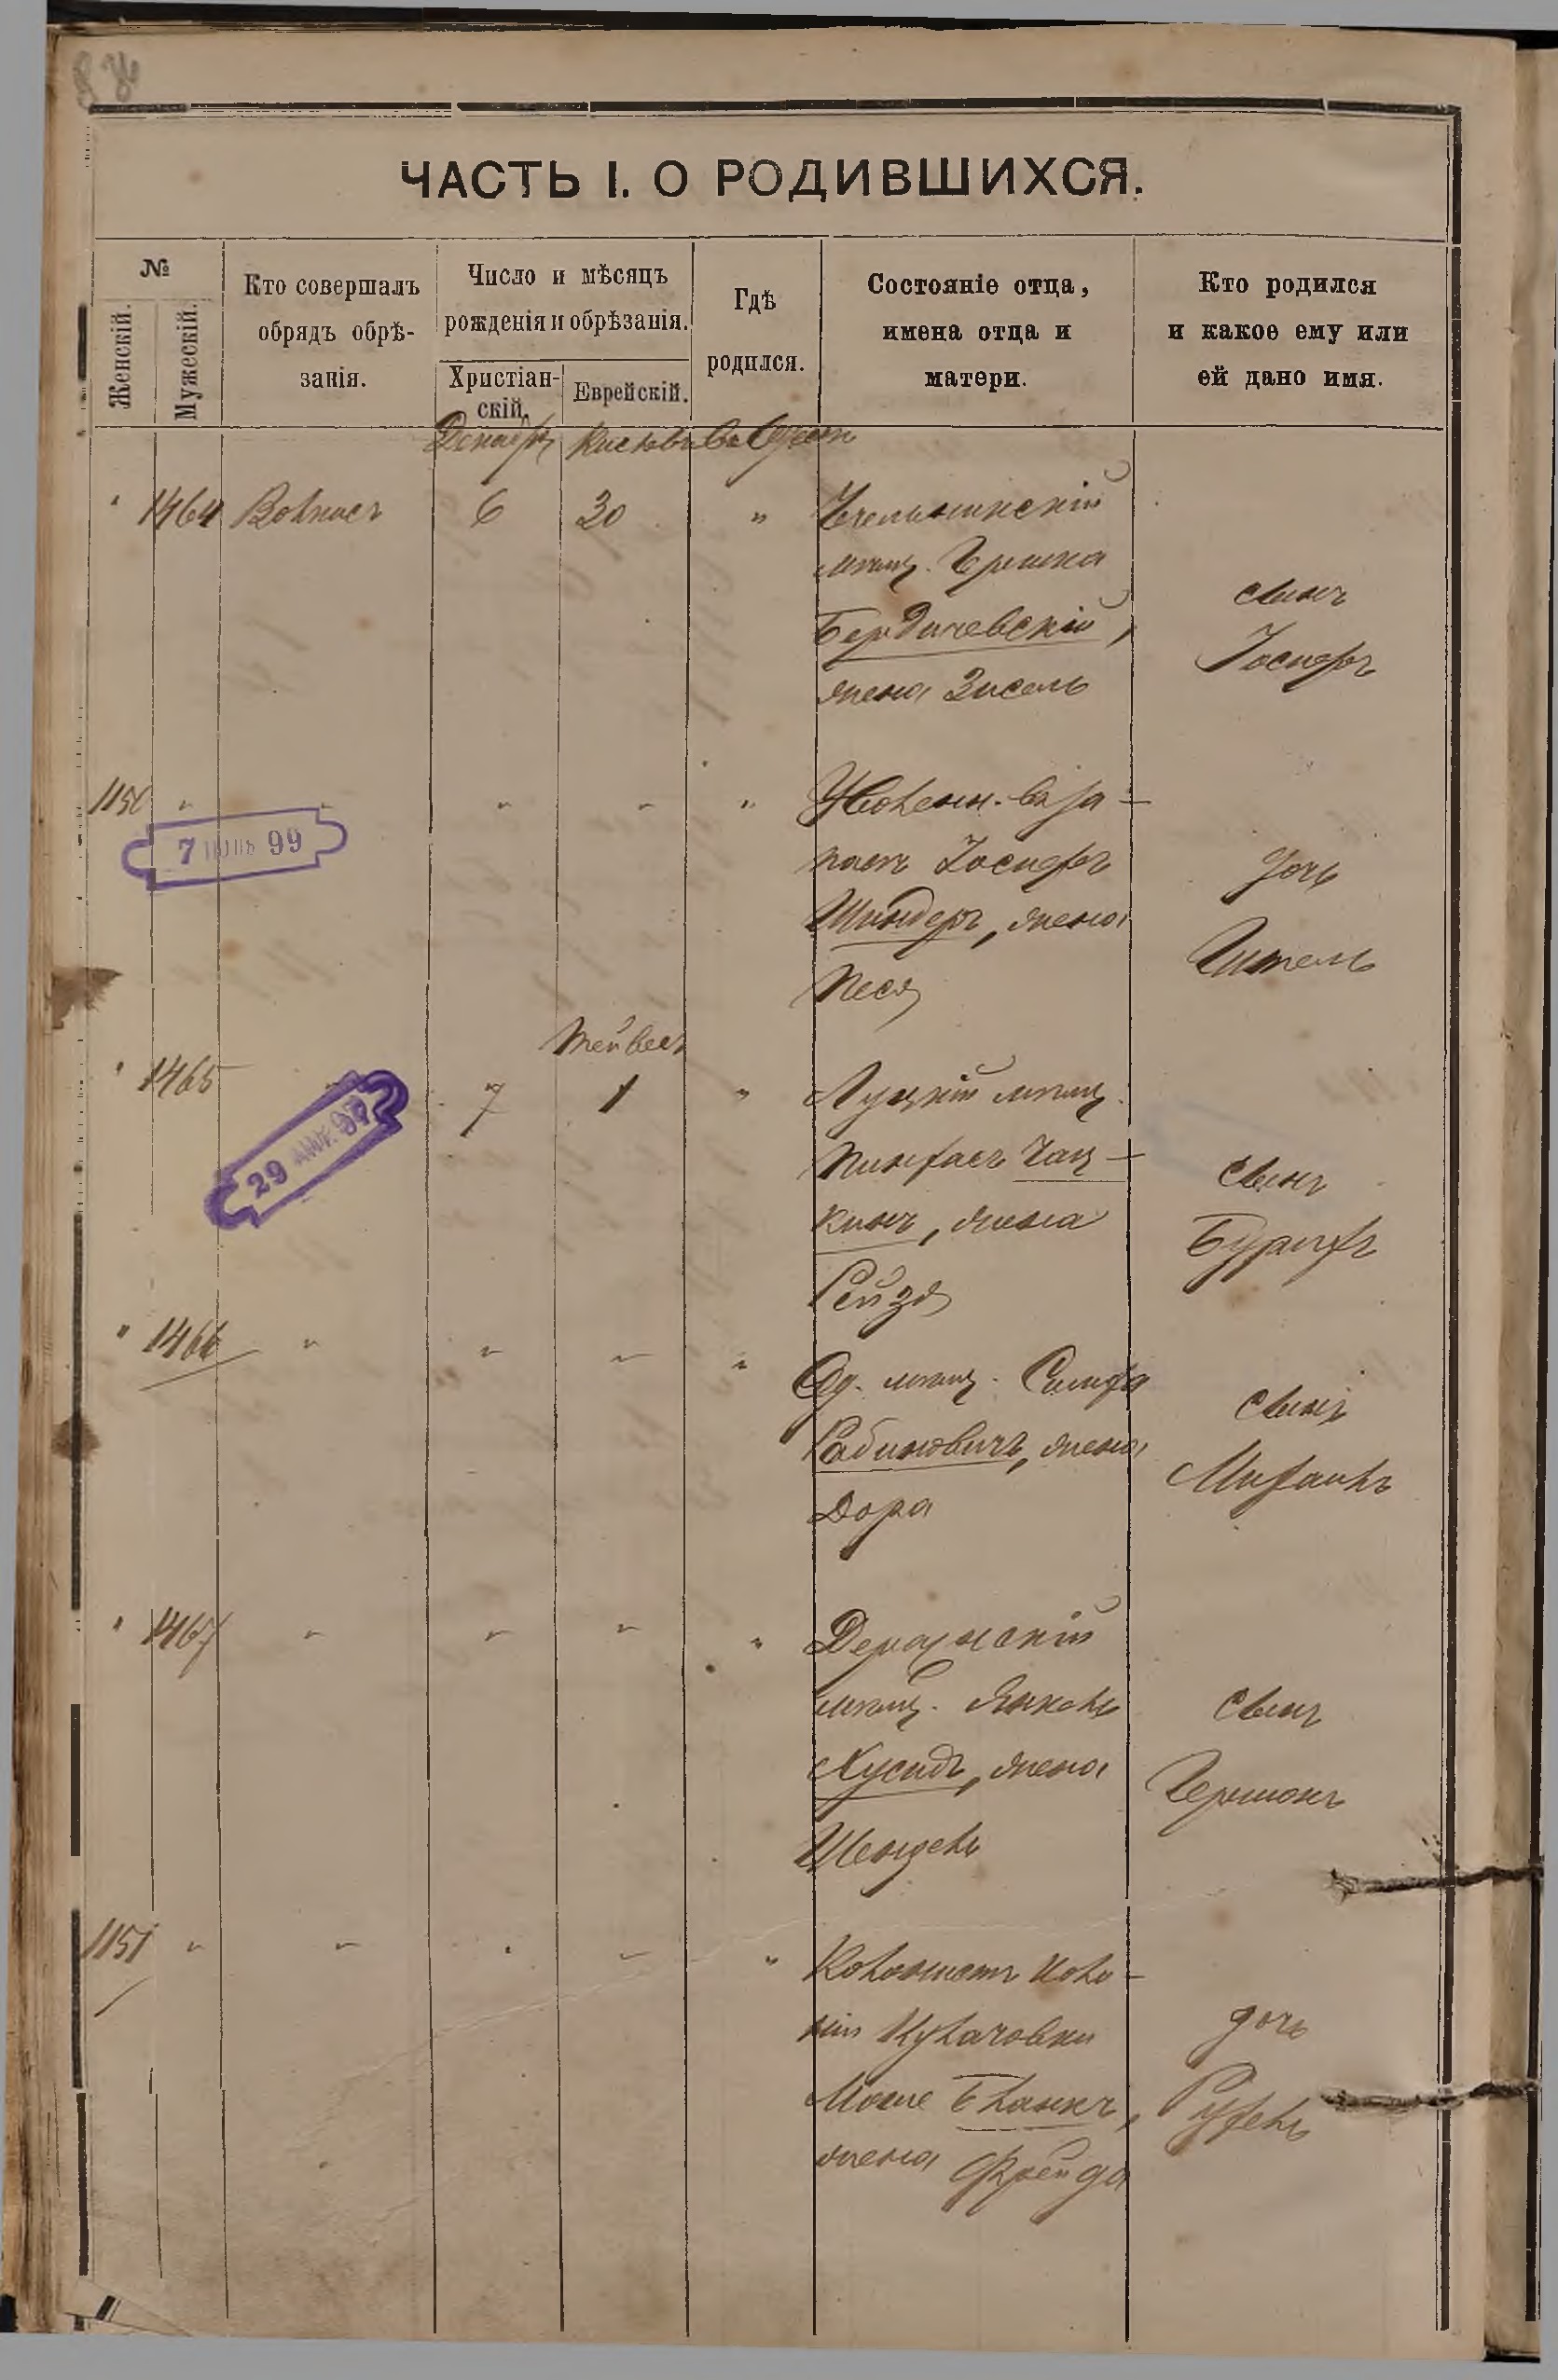 ЧАСТЬ I. О РОДИВШИХСЯ.
№
Женскій.
Мужескій.
Кто совершалъ
обрядъ обрѣ-
занія.
Число и мѣсяцъ
рожденія и обрѣзанія.
Христіан-
скій.
Еврейскій.
Гдѣ
родился.
Состояніе отца,
имена отца и
матери.
Кто родился
и какое ему или
ей дано имя.
Декабрь Кислевъ въ Одессѣ
" 1464 Волкасъ 6 30 "
мѣщ. Гершка
Бердичевскій,
жена Зисель
сынъ
Іосифъ
1150 " " " " "
7 99
Колен. - въ за-
пасъ Іосифъ
Шиндеръ, жена
Песя
дочь
Гитель
Тейвесъ
" 1465 " 7 1 " Луцкій мѣщ.
29 97
Пинхасъ Чац-
кинъ, жена
Рейзя
сынъ
Бурихъ
" 1466 " " " " Од. мѣщ. Симха
Рабиновичъ, жена
Дора
сынъ
Михаилъ
" 1467 " " " " Деражнскій
мѣщ. Янкель
Хусидъ, жена
Шендель
сынъ
Гершонъ
1151 " " " " " Колонистъ коло-
ніи Кулачовки
Моше Бланкъ,
жена Фрейда
дочь
Рухель